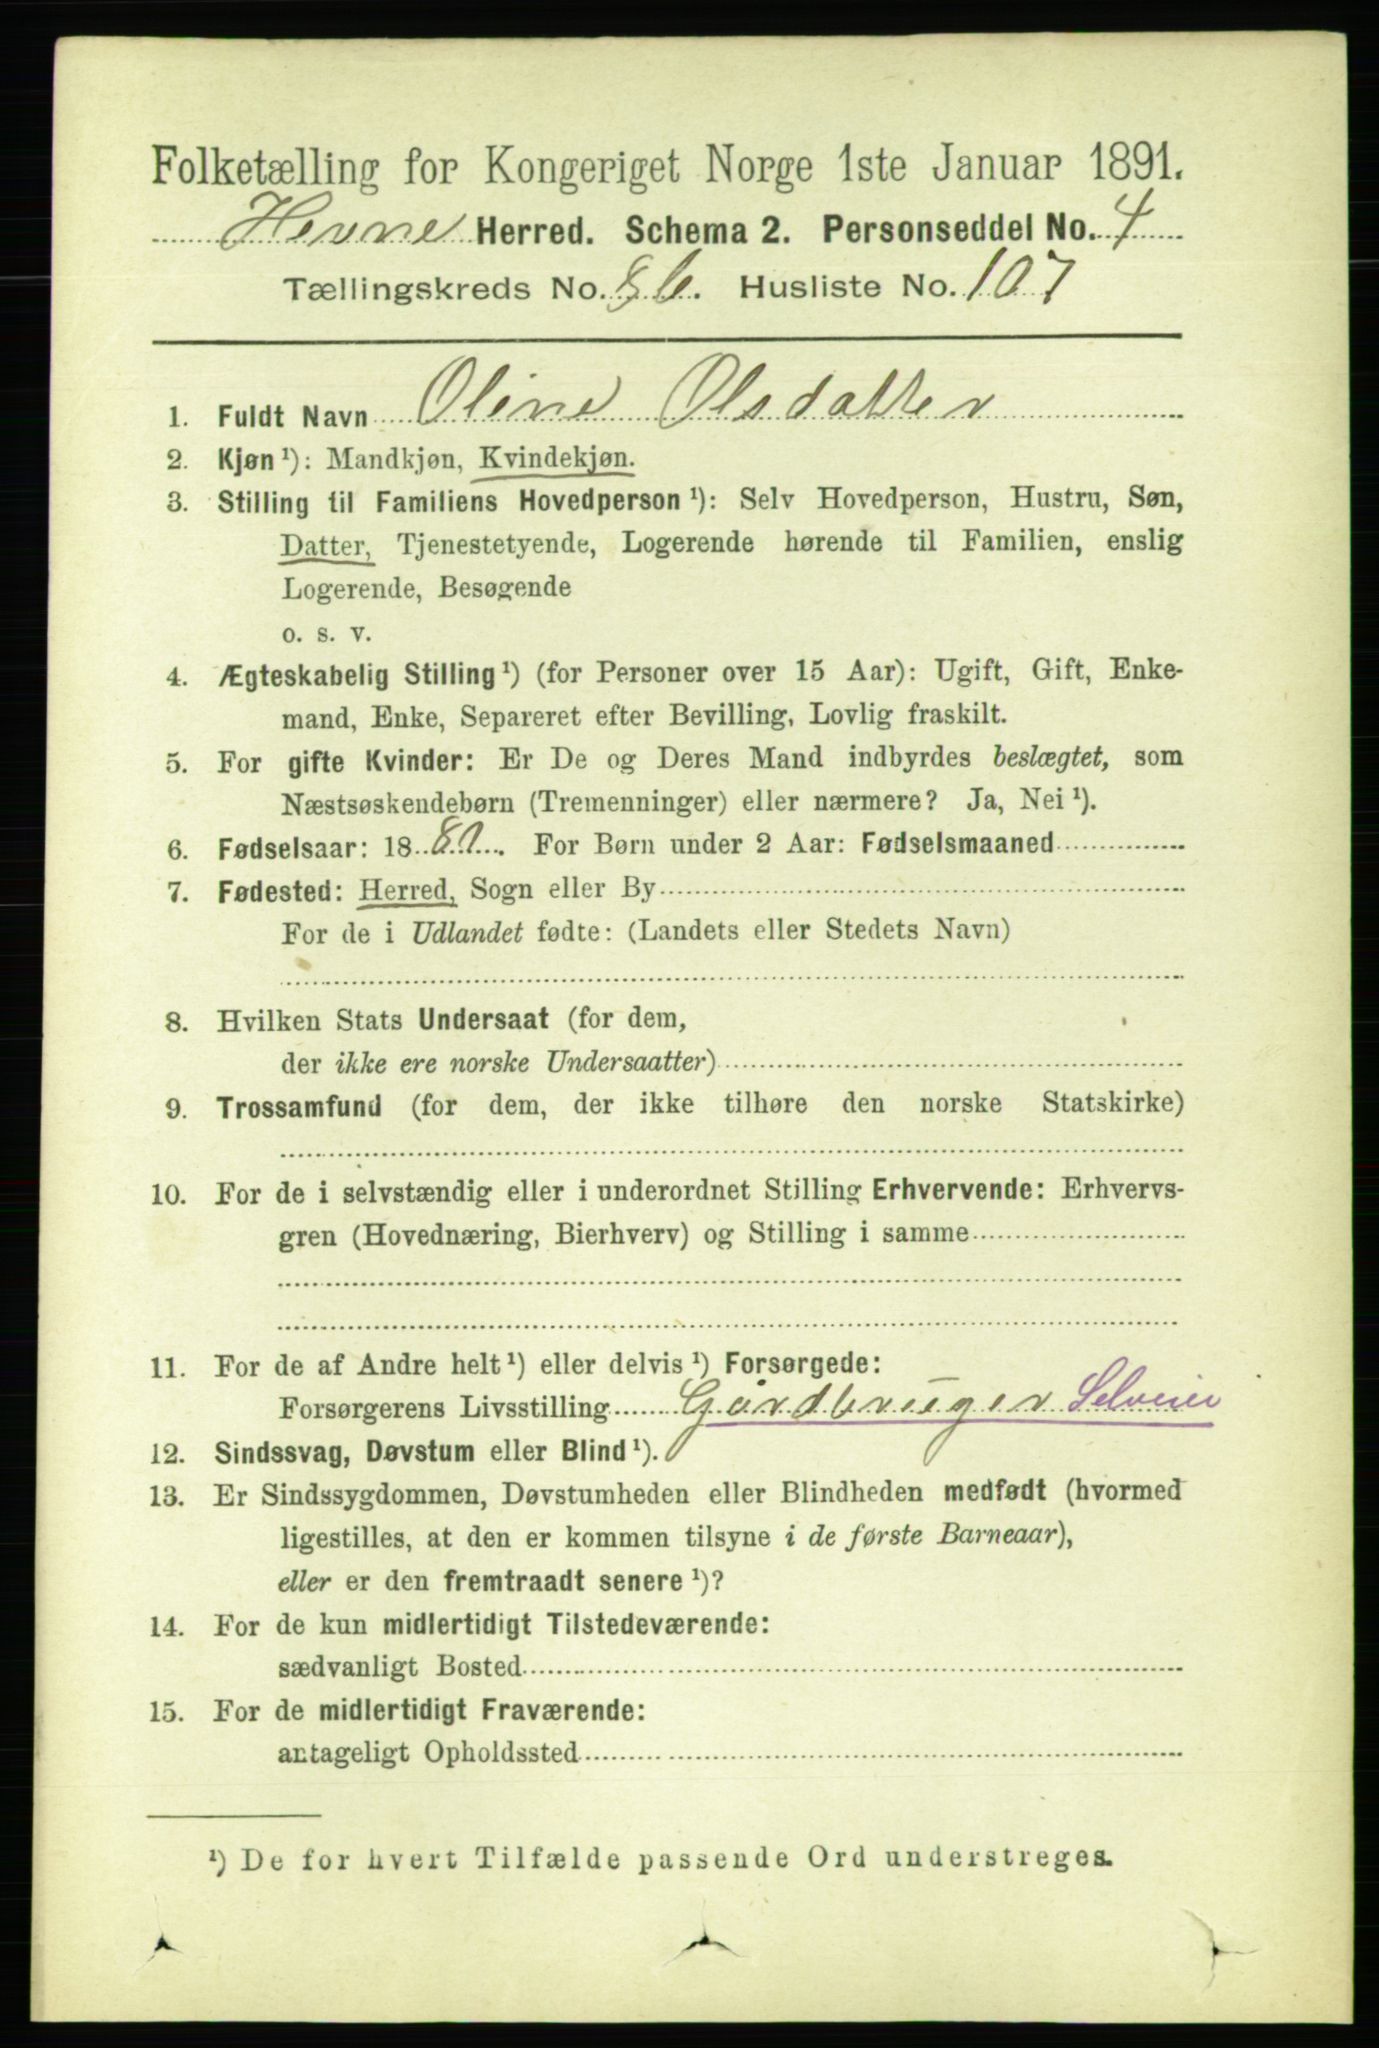 Folketælling for Kongeriget Norge 1ste Januar 1891.
Hevne Herred. Schema 2. Personseddel No. 4
Tællingskreds No. 8 b. Husliste No. 107
1. Fuldt Navn Oline Olsdatter
2. Kjøn¹): Mandkjøn, Kvindekjøn.
3. Stilling til Familiens Hovedperson¹): Selv Hovedperson, Hustru, Søn,
Datter, Tjenestetyende, Logerende hørende til Familien, enslig
Logerende, Besøgende
o. s. v.
4. Ægteskabelig Stilling¹) (for Personer over 15 Aar): Ugift, Gift, Enke-
mand, Enke, Separeret efter Bevilling, Lovlig fraskilt.
5. For gifte Kvinder: Er De og Deres Mand indbyrdes beslægtet, som
Næstsøskendebørn (Tremenninger) eller nærmere? Ja, Nei¹).
6. Fødselsaar: 18 For Børn under 2 Aar: Fødselsmaaned
7. Fødested: Herred, Sogn eller By
For de i Udlandet fødte: (Landets eller Stedets Navn)
8. Hvilken Stats Undersaat (for dem,
der ikke ere norske Undersaatter)
9. Trossamfund (for dem, der ikke tilhøre den norske Statskirke)
10. For de i selvstændig eller i underordnet Stilling Erhvervende: Erhvervs-
gren (Hovednæring, Bierhverv) og Stilling i samme
11. For de af Andre helt¹) eller delvis¹) Forsørgede:
Forsørgerens Livsstilling Gardbruger Selveier
12. Sindssvag, Døvstum eller Blind¹).
13. Er Sindssygdommen, Døvstumheden eller Blindheden medfødt (hvormed
ligestilles, at den er kommen tilsyne i de første Barneaar),
eller er den fremtraadt senere¹)?
14. For de kun midlertidigt Tilstedeværende:
sædvanligt Bosted
15. For de midlertidigt Fraværende:
antageligt Opholdssted
¹) De for hvert Tilfælde passende Ord understreges.